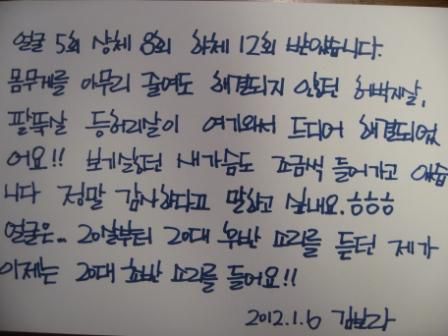 얼굴 5회 상체 8회 하체 12회 받았습니다.
몸무게를 아무리 줄여도 해결되지 않던 허벅지살,
팔뚝살 등허리살이 여기와서 드디어 해결되었
어요!! 보기싫던 새가슴도 조금씩 들어가고 있습
니다 정말 감사하다고 말하고 싶네요. ㅎㅎㅎ
얼굴은... 20살부터 20대 후반 소리를 듣던 제가
이제는 20대 초반 소리를 들어요!!
2012.1.6 김보라